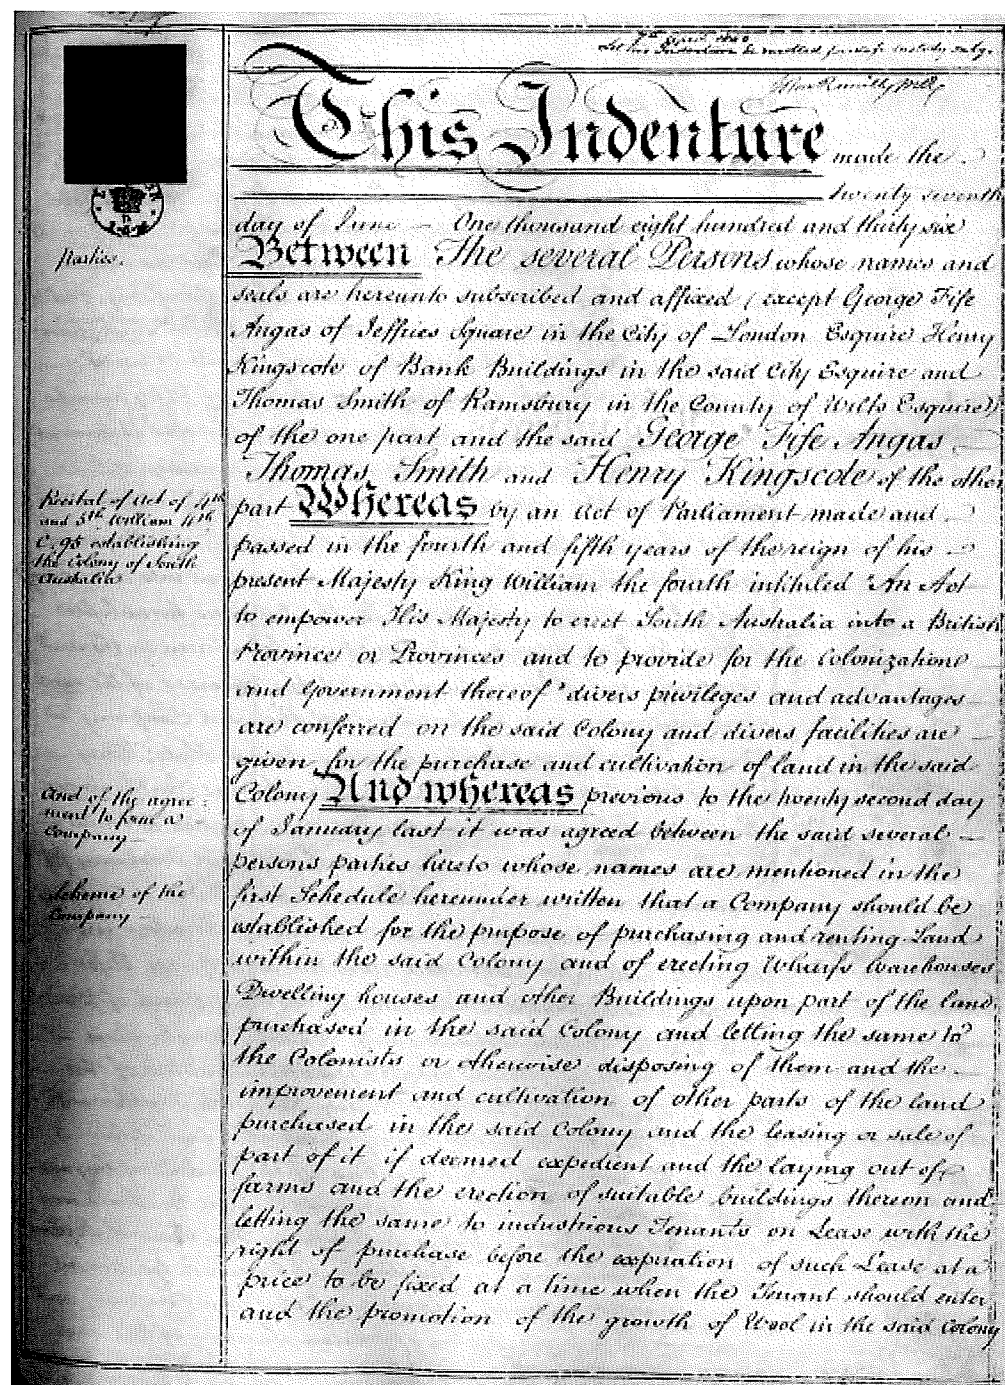 This Indenture made the
twenty seventh
day of June One thousand eight hundred and thirty six
Between The several Persons whose names and
seals are hereunto subscribed and affixed (except George Fife
Angas of Jeffries Square in the City of London Esquire Henry
Kingscote of Bank Buildings in the said City Esquire and
Thomas Smith of Ramsbury in the County of Wilts Esquire)
of the one part and the said George Fife Angas
Thomas Smith and Henry Kingscote of the other
part Whereas by an Act of Parliament made and
passed in the fourth and fifth years of the reign of his
present Majesty King William the fourth intituled "An Act
to empower His Majesty to erect South Australia into a British
Province or Provinces and to provide for the Colonization
and Government thereof" divers privileges and advantages
are conferred on the said Colony and divers facilities are
given for the purchase and cultivation of land in the said
Colony And whereas previous to the twenty second day
of January last it was agreed between the said several
persons parties hereto whose names are mentioned in the
first Schedule hereunder written that a Company should be
established for the purpose of purchasing and renting Land
within the said Colony and of erecting Wharfs Warehouses
Dwelling houses and other Buildings upon part of the land
purchased in the said Colony and letting the same to
the Colonists or otherwise disposing of them and the
improvement and cultivation of other parts of the land
purchased in the said Colony and the leasing or sale of
part of it if deemed expedient and the laying out of
farms and the erection of suitable buildings thereon and
letting the same to industrious Tenants on Lease with the
right of purchase before the expiration of such Lease at a
price to be fixed at a time when the Tenant should enter
and the promotion of the growth of Wool in the said Colony
Parties.
Recital of Act of 4th
and 5th William 4th
C. 95 establishing
the Colony of South
Australia
And of the agree-
ment to form a
Company
Scheme of the
Company